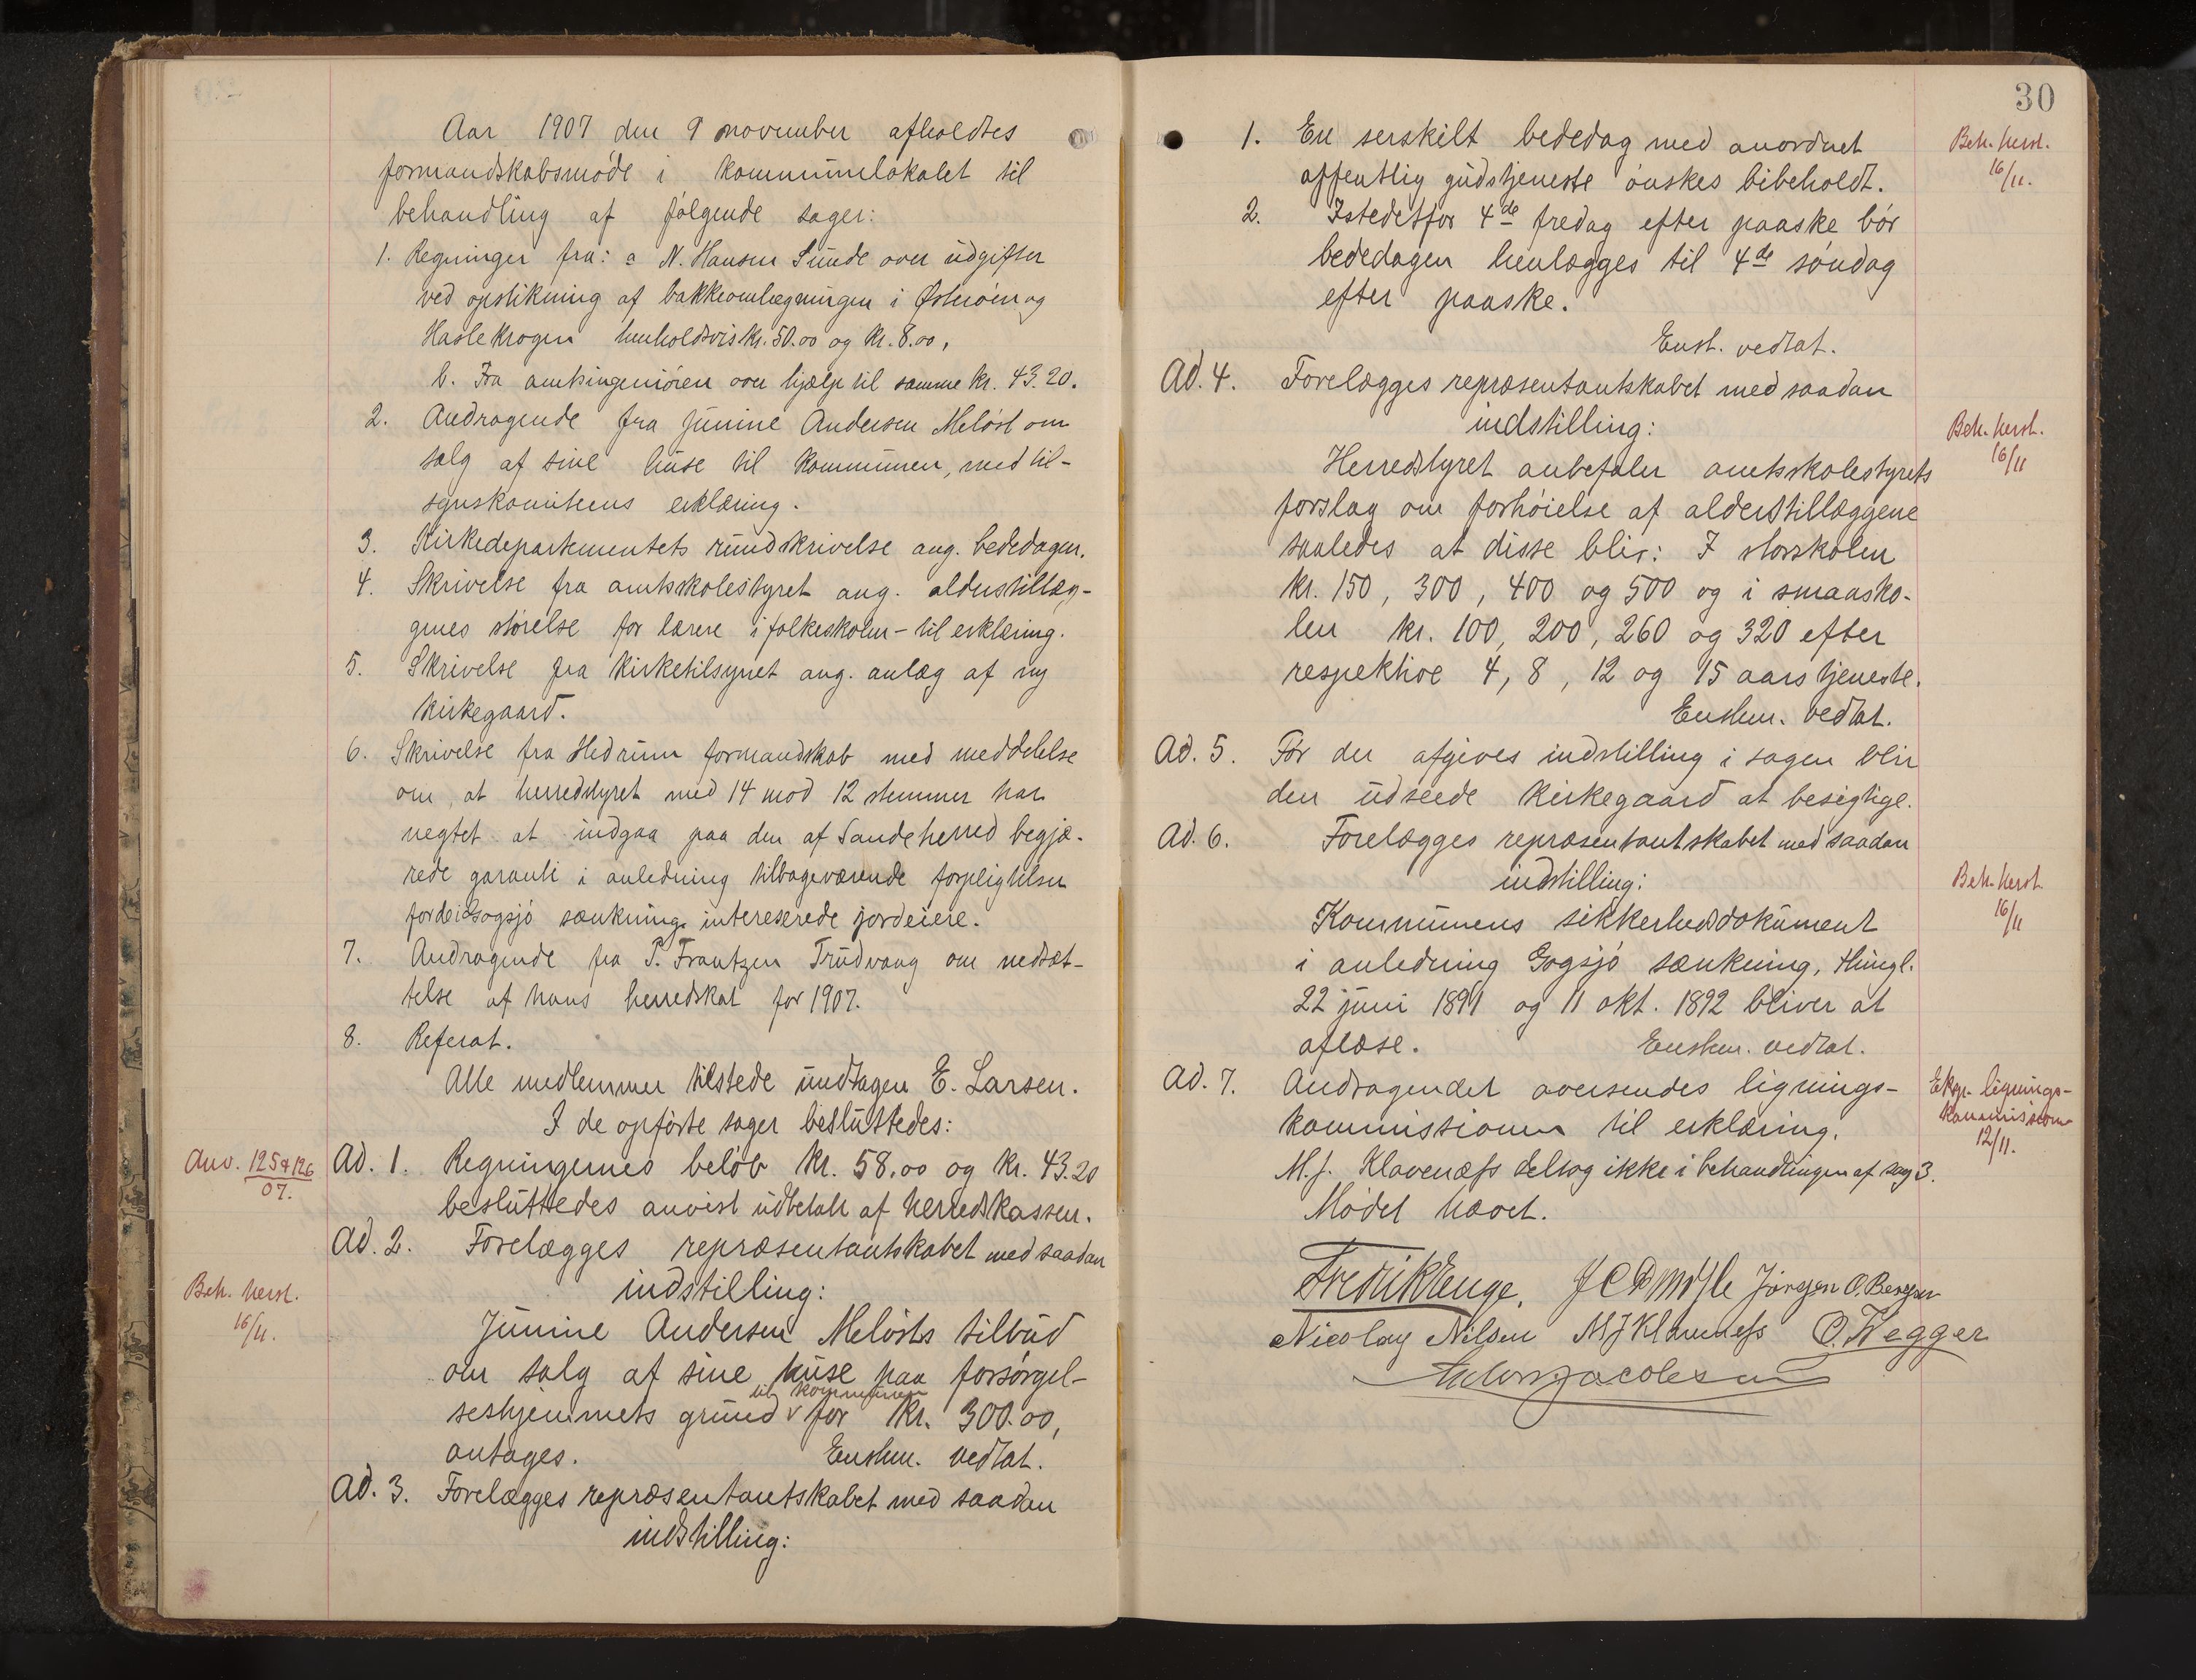 Aar 1907 den 9 november afholdtes
formandskabsmøde i kommunelokalet til
behandling af følgende sager:
1. Regninger fra: a N. Hansen Sunde over udgifter
ved opstikning af bakkeomlægningen i Østerøien og
Haslekrogen henholdsvis kr. 50.00 og kr. 8.00,
b. Fra amtsingeniøren over hjælp til samme kr. 43.20.
2. Andragende fra Junine Andersen Meløst om
salg af sine huse til kommunen, med til-
synskomiteens erklæring.
3. Kirkedepartementets rundskrivelse ang. bededagen.
4. Skrivelse fra amtsskolestyret ang. alderstillæg-
genes størelse for lærere i folkeskolen – til erklæring.
5. Skrivelse fra kirketilsynet ang. anlæg af ny
kirkegaard.
6. Skrivelse fra Hedrum formandskab med meddelelse
om, at herredstyret med 14 mod 12 stemmer har
negtet at indgaa paa den af Sandeherred begjæ-
rede garanti i anledning tilbageværende forpligtelser
for de i Gogsjø sænkning intereserede jordeiere.
7. Andragende fra P. Frantzen Trudvang om nedsæt-
telse af hans herredskat for 1907.
8. Referat.
Alle medlemmer tilstede undtagen E. Larsen.
I de opførte sager besluttedes:
Anv. 125 & 126
07.
Ad. 1. Regningernes beløb kr. 58.00 og kr. 43.20
besluttedes anvist udbetalt af herredskassen.
Ad. 2. Forelægges repræsentantskabet med saadan
indstilling:
Beh. herst.
16/11.
Junine Andersen Meløsts tilbud
om salg af sine huse paa forsørgel-
til kommunen
seshjemmets grund v for kr. 300.00,
antages. Enstem. vedtat.
Ad. 3. Forelægges repræsentantskabet med saadan
indstilling:
30
1. En serskilt bededag med anordnet
offentlig gudstjeneste ønskes bibeholdt.
Beh. herst.
16/11.
2. Istedetfor 4de fredag efter paaske bør
bededagen henlægges til 4de søndag
efter paaske.
Enst. vedtat.
Ad. 4. Forelægges repræsentantskabet med saadan
indstilling:
Beh. herst.
16/11
Herredstyret anbefaler amtsskolestyrets
forslag om forhøielse af alderstillæggene
saaledes at disse blir: I storskolen
kr. 150, 300, 400 og 500 og i smaasko-
len kr. 100, 200, 260 og 320 efter
respektive 4, 8, 12 og 15 aars tjeneste.
Enstem. vedtat.
Ad. 5. Før der afgives indstilling i sagen blir
den udseede kirkegaard at besigtige.
Ad. 6. Forelægges repræsentantskabet med saadan
indstilling:
Beh. herst.
16/11
Kommunens sikkerhedsdokument
i anledning Gogsjø sænkning, thingl.
22 juni 1891 og 11 okt. 1892 bliver at
aflæse. Enstem. vedtat.
Ad. 7. Andragendet oversendes lignings-
kommissionen til erklæring.
Eksp. lignings-
kommissionen
12/11.
M. J. Klavenæss deltog ikke i behandlingen af sag 3.
Mødet hævet.
Fredrik Enge. Jørgen O. Bergsen
Nicolay Nilsen M J Klavenæss O. Hegger
Anton Jacobsen